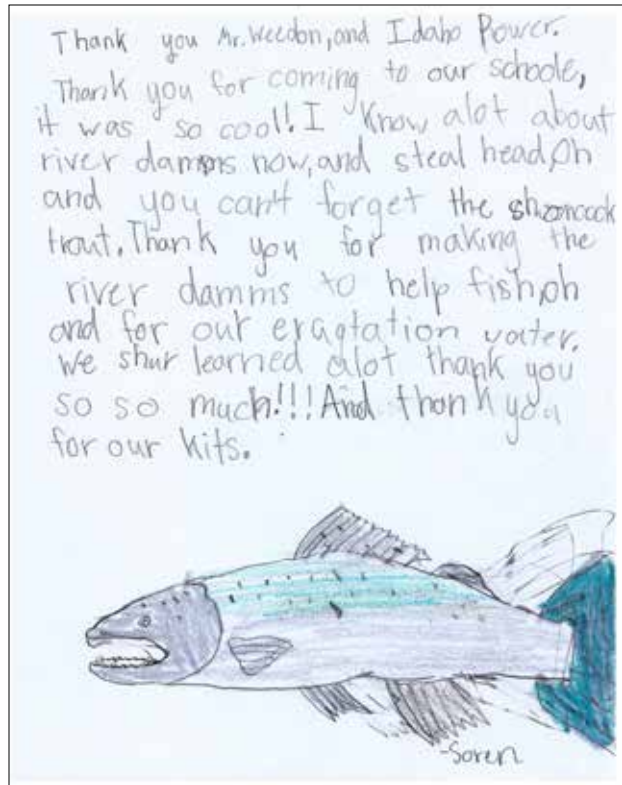 Thank you Mr. Weedon, and Idaho Power.
Thank you for coming to our schoole,
it was so cool! I know alot about
river damms now, and steal head, Oh
and you can't forget the
trout. Thank you for making the
river damms to help fish, oh
and for our eragtation water.
We shur learned alot thank you
so so much!!! And thank you
for our kits.
-Soren